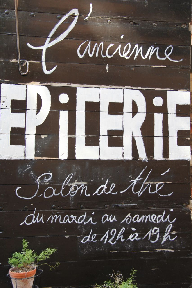 L'ancienne
EPiCERiE
Salon de thé
du mardi au samedi
de 12h à 19h